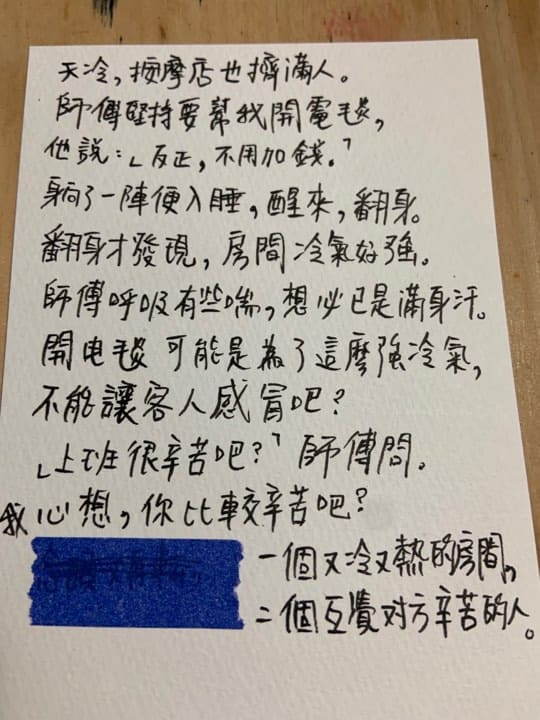 天冷，按摩店也擠滿人。
師傅堅持要幫我開電毯，
他說：「反正，不用加錢。」
躺了一陣便入睡，醒來，翻身。
翻身才發現，房間冷氣好強。
師傅呼吸有些喘，想必已是滿身汗。
開电毯可能是為了這麼強冷氣，
不能讓客人感冒吧？
「上班很辛苦吧？」師傅問。
我心想，你比較辛苦吧？
一個又冷又熱的房間，
二個互覺对方辛苦的人。